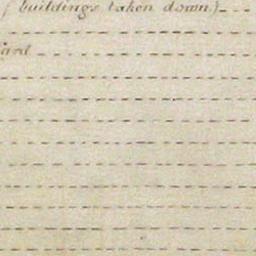 ( buildings taken down)
ard